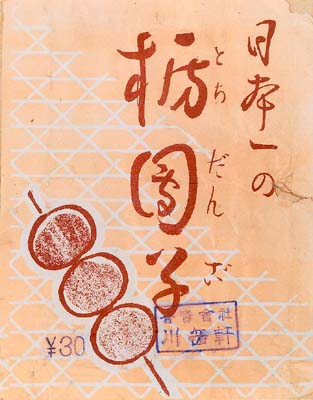 日本一の
栃團子
とちだんご
¥30
合資會社
川西軒